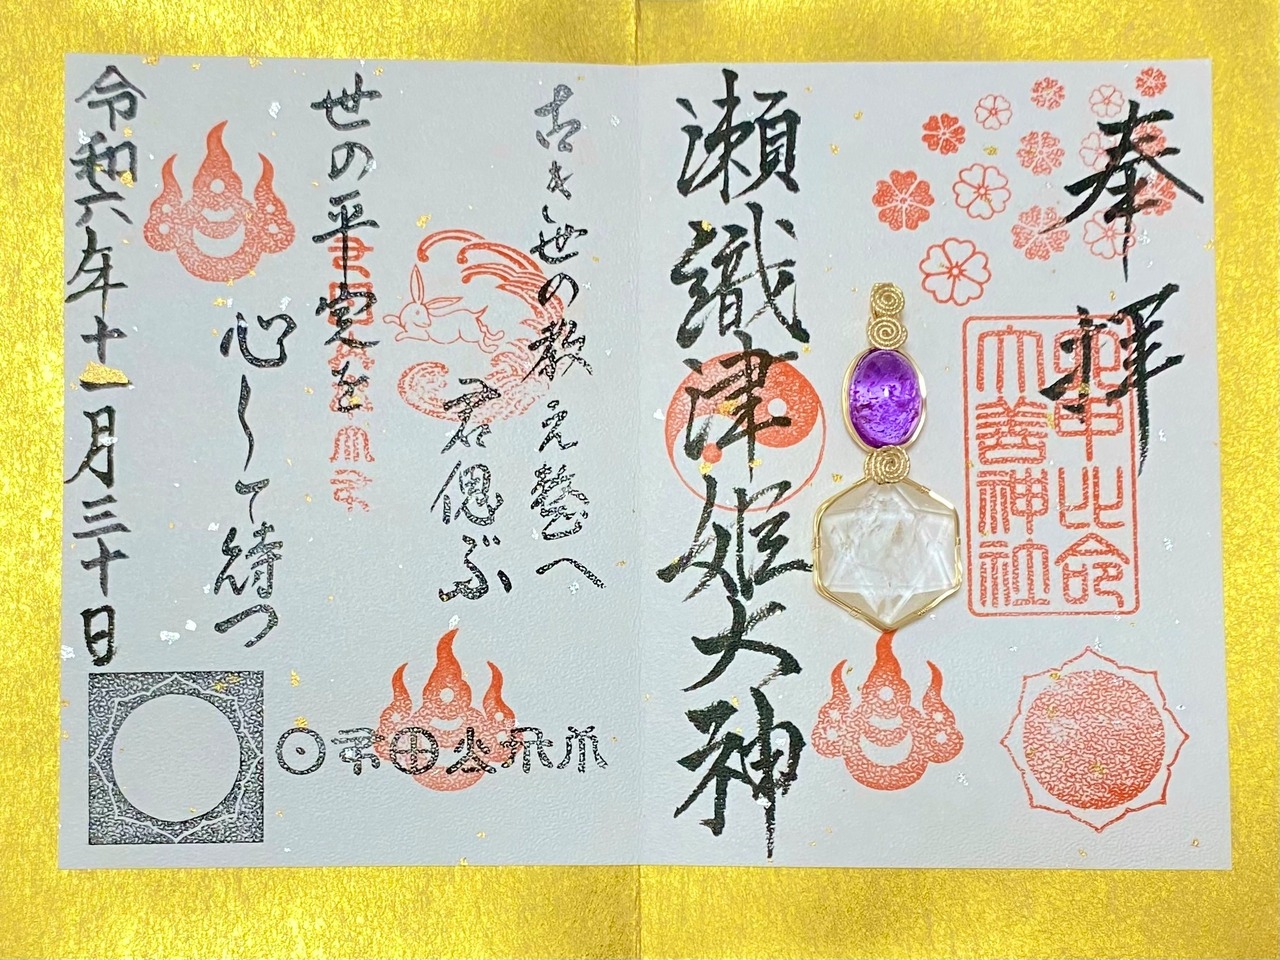 奉拝
六甲比命
大善神社
瀬織津姫大神
古き世の教え
君偲ぶ
世の平定を
心して待つ
令和六年十一月三十日